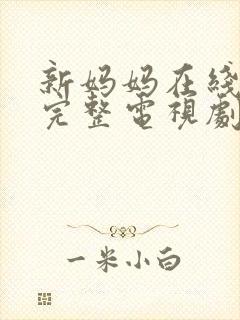 新妈妈在线
完整電視劇
一米小白